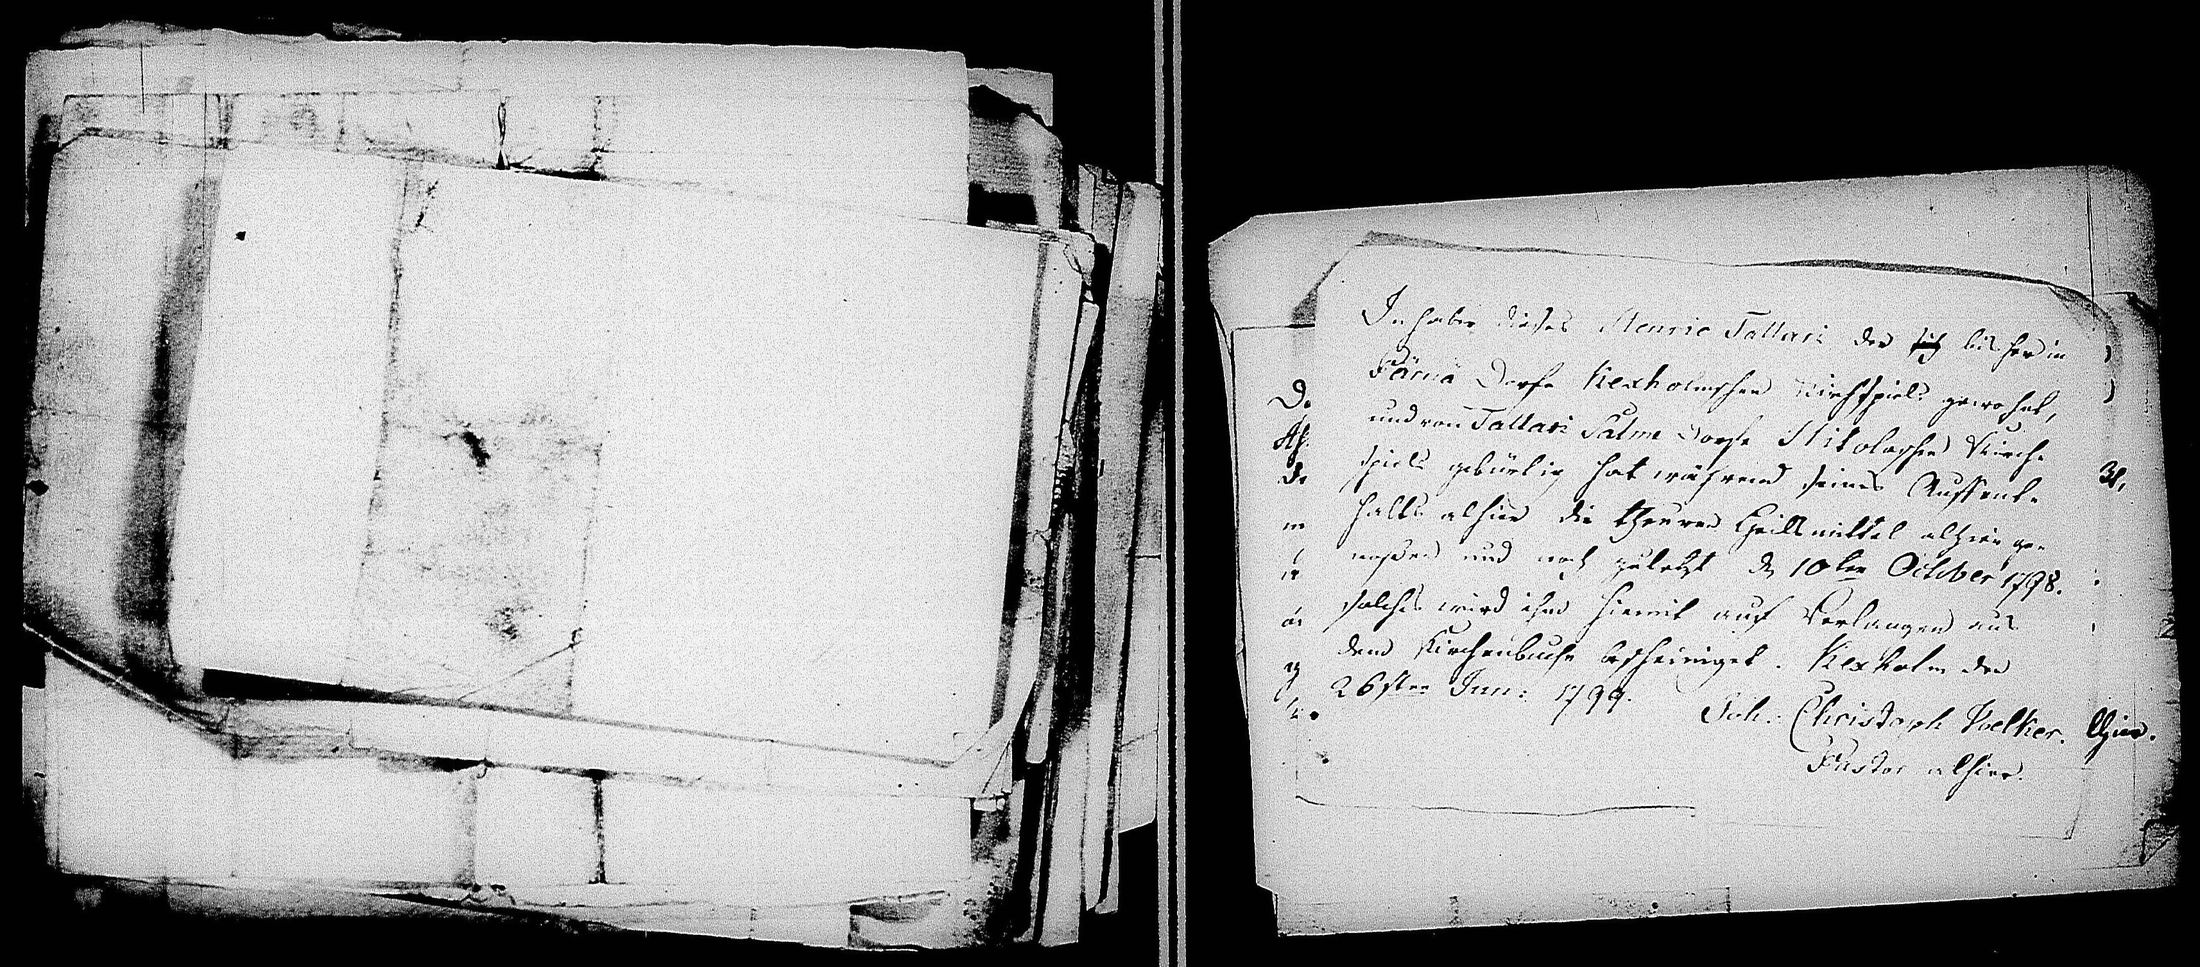 Inhaber dieses Henric Tattari der bisher in
Pärnä Dorfe Kexholmschen Kirchspiels gewohnt,
und von Tattari Salme Dorfe St Nikolaschen Kirch-
spiels gebürtig hat während seines Auffent-
halts alhier die theuren Heillmittel alhier ge-
noßen und noch zuletzt d 10ten October 1798.
solches wird ihm hiemit auf Verlangen aus
dem Kirchenbuche bescheiniget. Kexholm den
26sten Jun: 1799.
Joh: Christoph Voelker.
Pastor alhier.